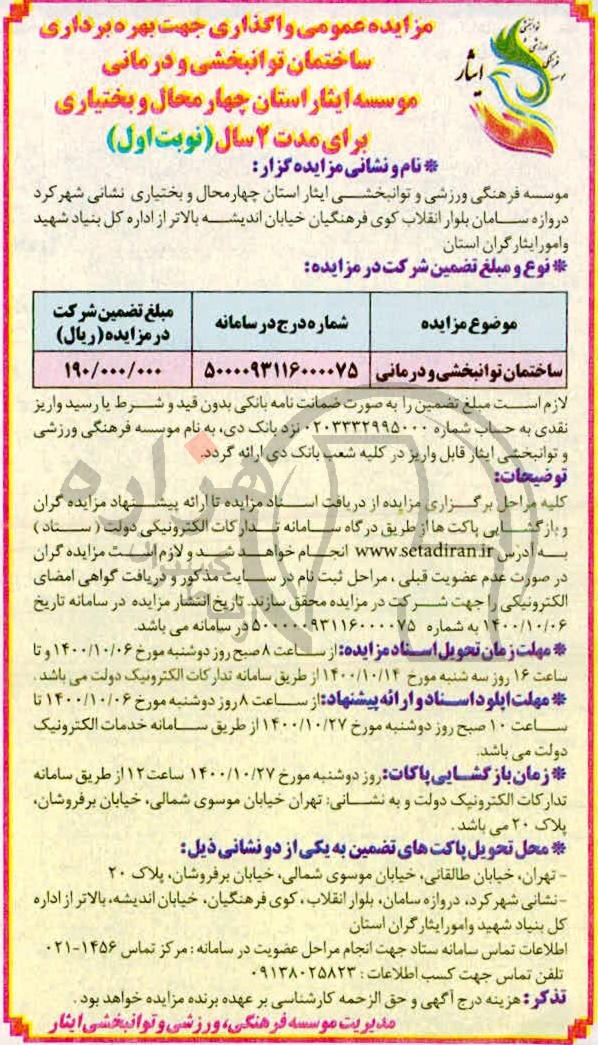 مزایده عمومی واگذاری جهت بهره برداری
ساختمان توانبخشی و درمانی
موسسه ایثار استان چهارمحال و بختیاری
برای مدت ۲ سال (نوبت اول)
ایثار
* نام و نشانی مزایده گزار:
موسسه فرهنگی ورزشی و توانبخشی ایثار استان چهارمحال و بختیاری نشانی شهرکرد
دروازه سامان بلوار انقلاب کوی فرهنگیان خیابان اندیشه بالاتر از اداره کل بنیاد شهید
وامور ایثارگران استان
* نوع و مبلغ تضمین شرکت در مزایده:
موضوع مزایده شماره درج در سامانه مبلغ تضمین شرکت در مزایده (ریال)
ساختمان توانبخشی و درمانی ۵۰۰۰۰۹۳۱۱۶۰۰۰۰۷۵ ۱۹۰/۰۰۰/۰۰۰
لازم است مبلغ تضمین را به صورت ضمانت نامه بانکی بدون قید و شرط یا رسید واریز
نقدی به حساب شماره ۰۲۰۳۳۳۲۹۹۵۰۰۰ نزد بانک دی، به نام موسسه فرهنگی ورزشی
و توانبخشی ایثار قابل واریز در کلیه شعب بانک دی ارائه گردد.
توضیحات:
کلیه مراحل برگزاری مزایده از دریافت اسناد مزایده تا ارائه پیشنهاد مزایده گران
و بازگشایی پاکت ها از طریق درگاه سامانه تدارکات الکترونیکی دولت (ستاد)
به آدرس www.setadiran.ir انجام خواهد شد و لازم است مزایده گران
در صورت عدم عضویت قبلی، مراحل ثبت نام در سایت مذکور و دریافت گواهی امضای
الکترونیکی را جهت شرکت در مزایده محقق سازند. تاریخ انتشار مزایده در سامانه تاریخ
۱۴۰۰/۱۰/۰۶ به شماره ۵۰۰۰۰۰۹۳۱۱۶۰۰۰۰۷۵ در سامانه می باشد.
* مهلت زمان تحویل اسناد مزایده: از ساعت ۸ صبح روز دوشنبه مورخ ۱۴۰۰/۱۰/۰۶ و تا
ساعت ۱۶ روز سه شنبه مورخ ۱۴۰۰/۱۰/۱۴ از طریق سامانه تدارکات الکترونیک دولت می باشد.
* مهلت اپلود اسناد و ارائه پیشنهاد: از ساعت ۸ روز دوشنبه مورخ ۱۴۰۰/۱۰/۰۶ تا
ساعت ۱۰ صبح روز دوشنبه مورخ ۱۴۰۰/۱۰/۲۷ از طریق سامانه خدمات الکترونیک
دولت می باشد.
* زمان بازگشایی پاکات: روز دوشنبه مورخ ۱۴۰۰/۱۰/۲۷ ساعت ۱۲ از طریق سامانه
تدارکات الکترونیک دولت و به نشانی: تهران خیابان موسوی شمالی، خیابان برفروشان،
پلاک ۲۰ می باشد.
* محل تحویل پاکت های تضمین به یکی از دو نشانی ذیل:
- تهران، خیابان طالقانی، خیابان موسوی شمالی، خیابان برفروشان، پلاک ۲۰
- نشانی شهرکرد، دروازه سامان، بلوار انقلاب، کوی فرهنگیان، خیابان اندیشه، بالاتر از اداره
کل بنیاد شهید وامور ایثارگران استان
اطلاعات تماس سامانه ستاد جهت انجام مراحل عضویت در سامانه: مرکز تماس ۱۴۵۶-۰۲۱
تلفن تماس جهت کسب اطلاعات: ۰۹۱۳۸۰۲۵۸۲۳
تذکر: هزینه درج آگهی و حق الزحمه کارشناسی بر عهده برنده مزایده خواهد بود.
مدیریت موسسه فرهنگی، ورزشی و توانبخشی ایثار